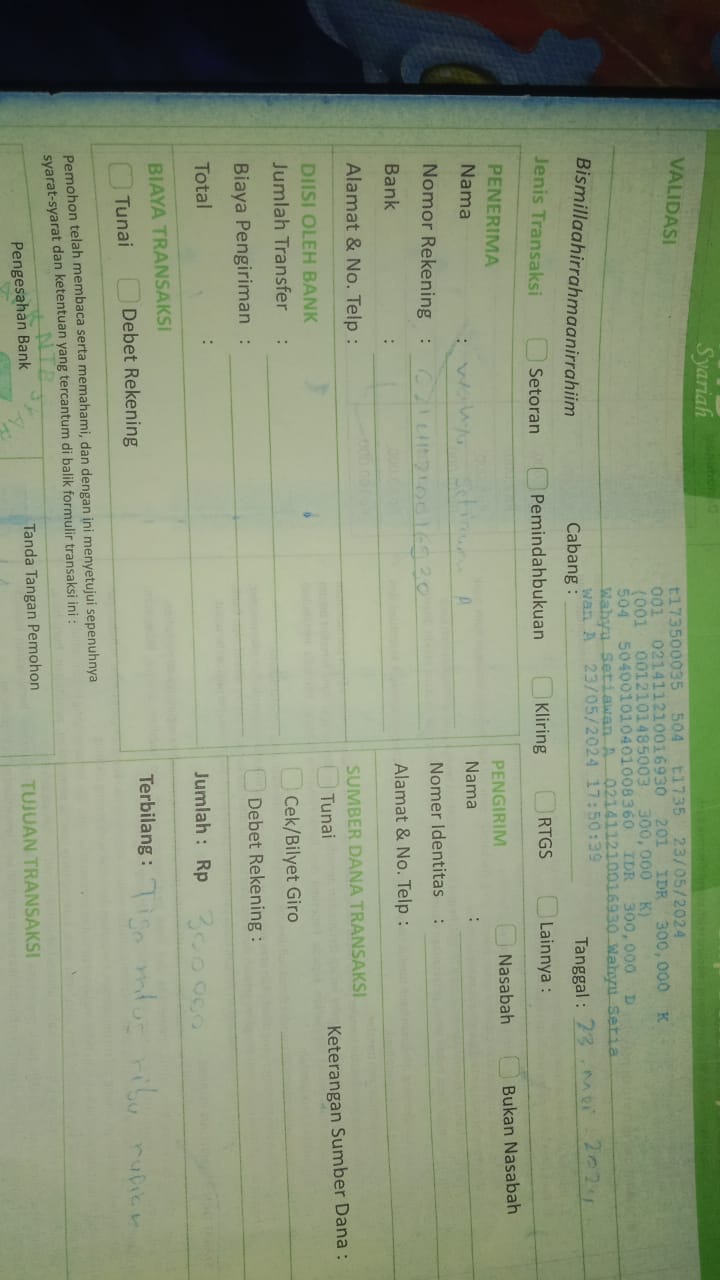 Syariah
VALIDASI
t173500035 504 t1735 23/05/2024
001 02141121001693​0 201 IDR 300,000 K
(001 0012101485003 300,000 K)
504 504001010401008360 IDR 300,000 D
Wahyu Setiawan A 021411210016930 Wahyu Setia
wan A 23/05/2024 17:50:39
Bismillaahirrahmaanirrahiim Cabang : Tanggal : 23 Mei 2024
Jenis Transaksi Setoran Pemindahbukuan Kliring RTGS Lainnya :
PENERIMA
Nama : Wahyu Setiawan A
Nomor Rekening : 021411210016930
Bank :
Alamat & No. Telp :
PENGIRIM Nasabah Bukan Nasabah
Nama :
Nomer Identitas :
Alamat & No. Telp :
DIISI OLEH BANK
Jumlah Transfer :
Biaya Pengiriman :
Total :
SUMBER DANA TRANSAKSI Keterangan Sumber Dana :
Tunai
Cek/Bilyet Giro
Debet Rekening :
Jumlah : Rp 300000
BIAYA TRANSAKSI
Tunai Debet Rekening
Terbilang : Tiga ratus ribu rupiah
Pemohon telah membaca serta memahami, dan dengan ini menyetujui sepenuhnya
syarat-syarat dan ketentuan yang tercantum di balik formulir transaksi ini :
Pengesahan Bank Tanda Tangan Pemohon
TUJUAN TRANSAKSI